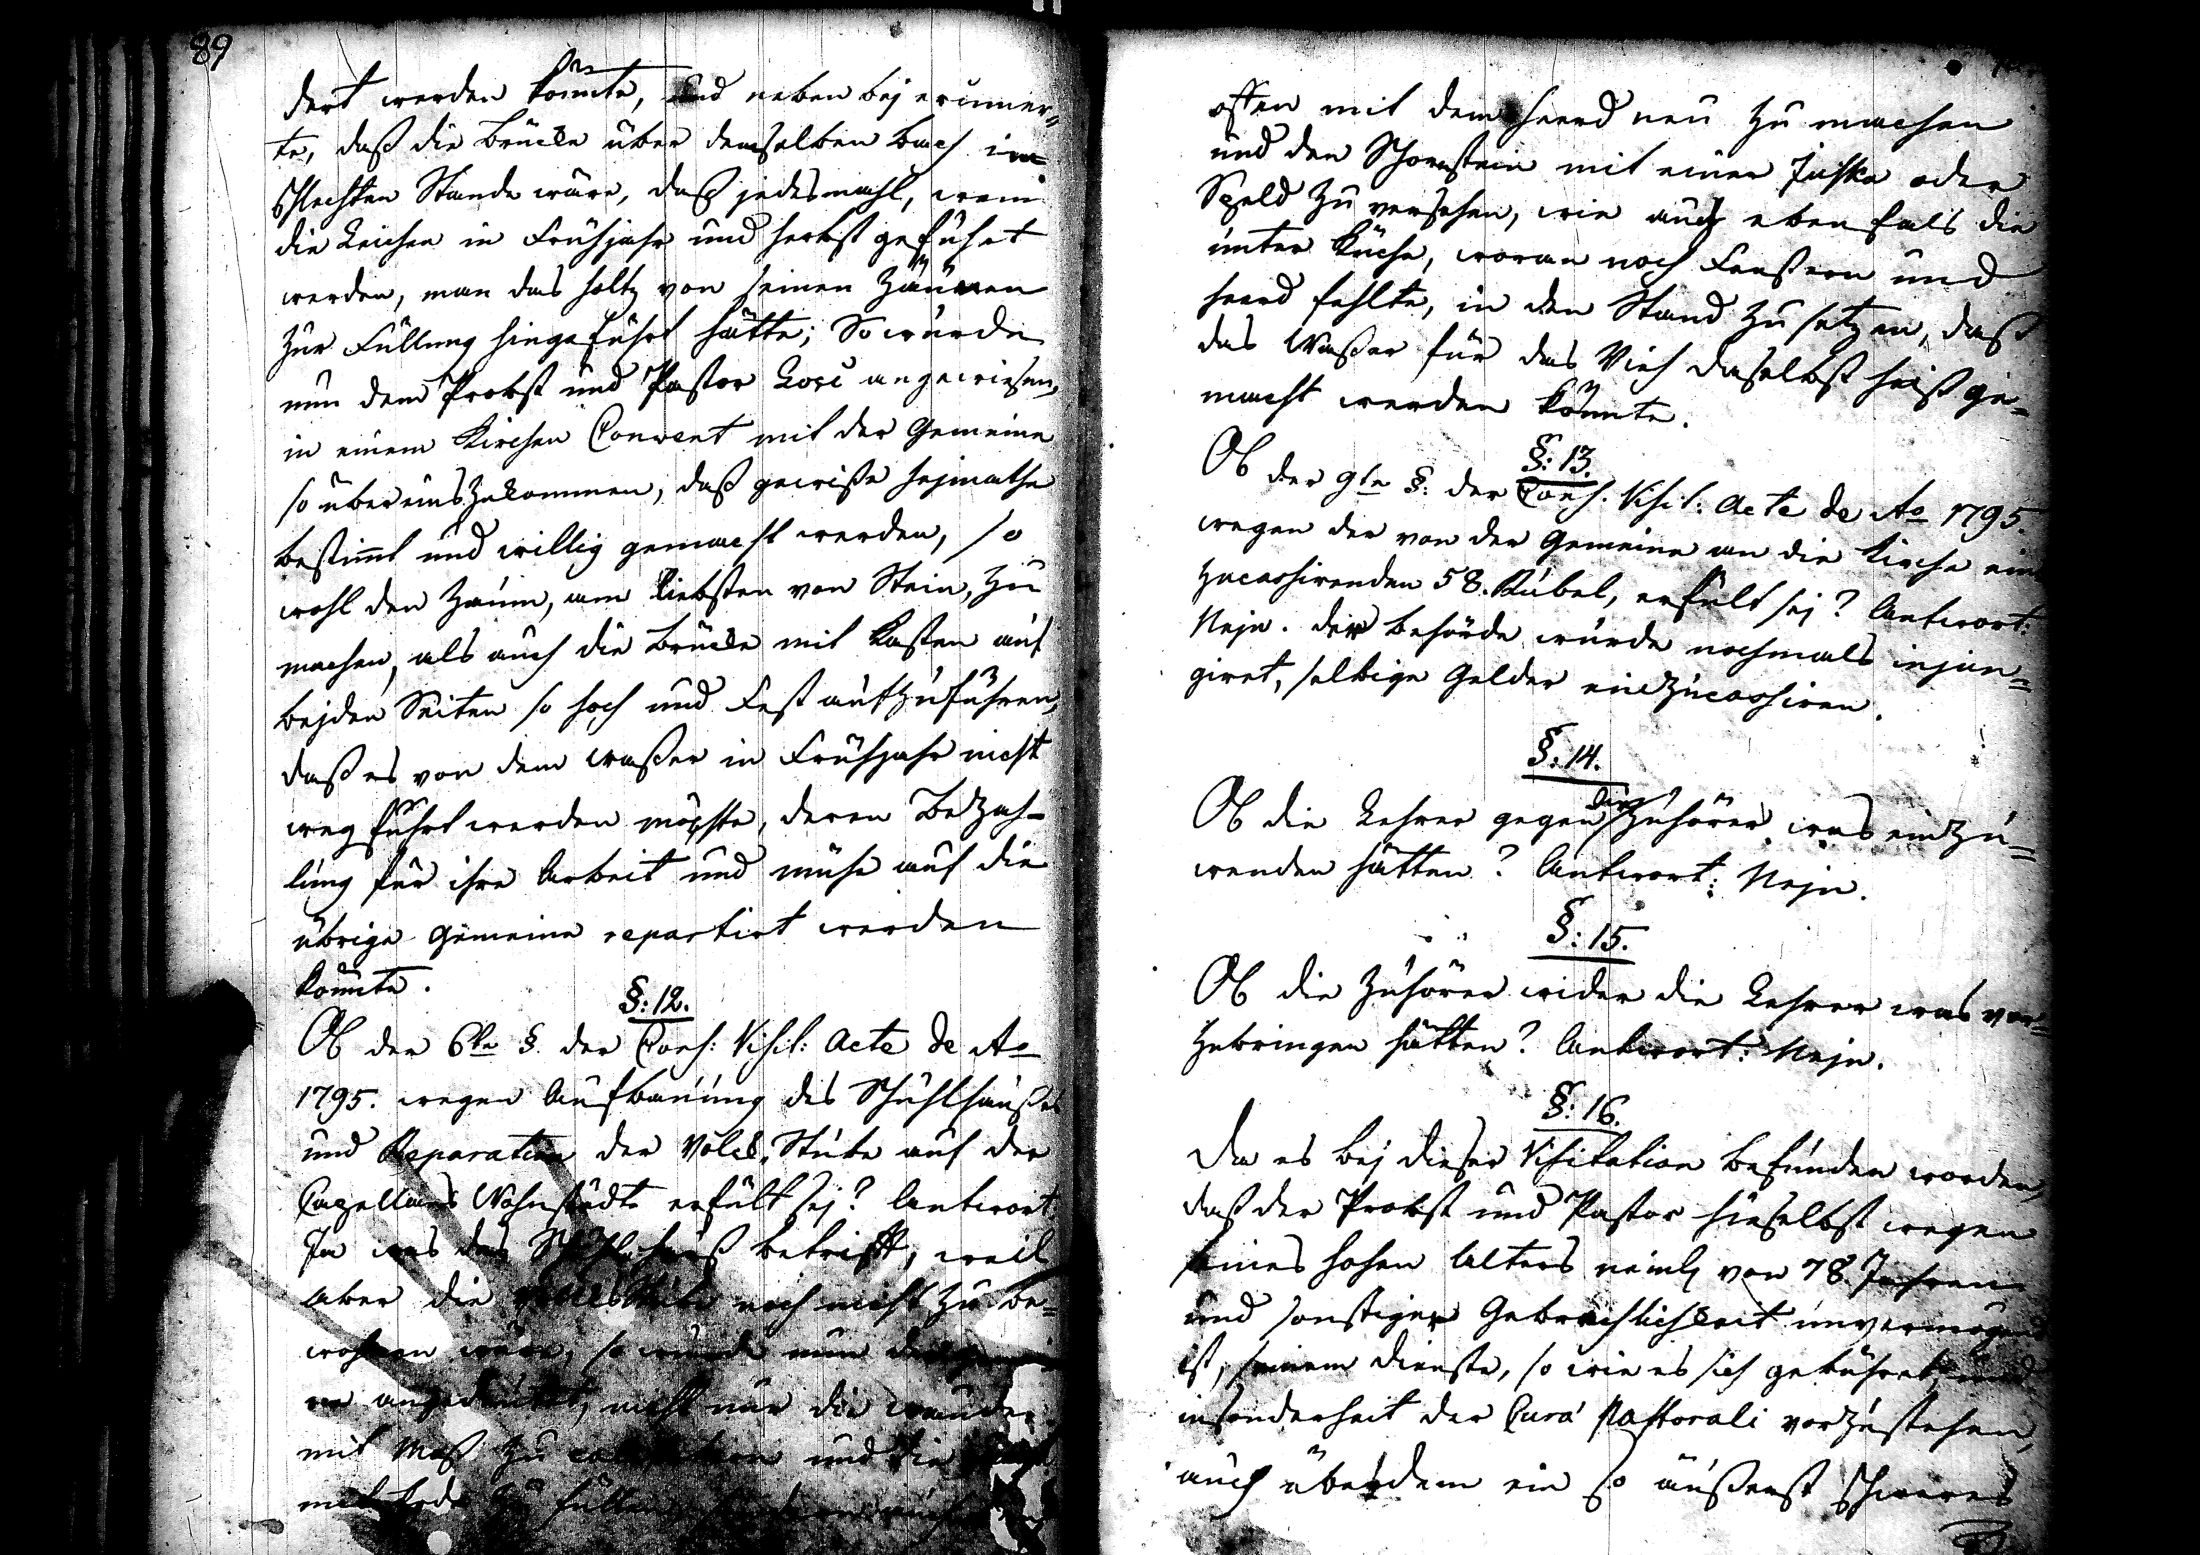 89
dert werden könnte, und neben bej erinner=
te, daß die Brücke über demselben Bach im
schlechten Stande wäre, daß jedesmahl, wenn
die Leichen in Frühjahr und Herbst geführt
werden, man das Holtz von seinen Zäunen
zur Füllung hingeführt hätte; So wurde
nun dem Probst und Pastor angewiesen,
in einem Kirchen Convent mit der Gemeine
so übereinszukommen, daß gewiße Hejmathe
bestimt und willig gemacht werden, so
wohl den Zaun, am liebsten von Stein, zu
machen, als auch die Brücke mit Kasten auf
bejden Seiten so hoch und Fest aufzuführen,
daß es von dem Waßer in Frühjahr nicht
weg führt werden möchte, deren Bezah-
lung für ihre Arbeit und mühe auf die
übrige Gemeine repartirt werden
könnte.
§: 12.
Ob der 6te §. der Cons: Visit: Acte de Ao
1795. wegen Aufbauung des Schuhlhaußes
und Reparation der Volcks Stube auf der
Capellans Wohnstädte erfült sej? Antwort
Ja was das Schuhlhauß betrifft, weil
aber die Volcks Stube noch nicht zu be=
wohnen wäre, so wurde nun
angedeutet, nicht nur die Wände
mit Moß zu und die
mit Erde zu füllen, sondern auch
offen mit dem Heerd neu zu machen
und den Schornstein mit einer Juska oder
Speld zu versehen, wie auch eben fals die
unter Küche, woran noch Fenstern und
Heerd fehlte, in den Stand zu setzen, daß
das Waßer für das Vieh daselbst heiß ge=
macht werden könnte.
§: 13.
Ob der 9te §: der Cons. Visit: Acte de Ao 1795.
wegen der von der Gemeine an die Kirche ein
zucassirenden 58. Rubel, erfült sej? Antwort:
Nejn. der Behörde würde nochmals injun=
giret, selbige Gelder einzucassiren.
§. 14.
Ob die Lehrer gegen die Zuhörer was einzu=
wenden hätten? Antwort: Nejn.
§: 15.
Ob die Zuhörer wider die Lehrer was vor=
zubringen hätten? Antwort: Nejn.
§: 16.
Da es bej dieser Visitation befunden worden,
daß der Probst und Pastor hieselbst wegen
seines hohen Alters neml. von 78 Jahren
und sonstiger Gebrechlichkeit unvermögend
ist, seinem Dienste, so wie es sich gebühret, und
insonderheit der Cura Pastorali vorzustehen,
auch überdem ein so äußerst schweres